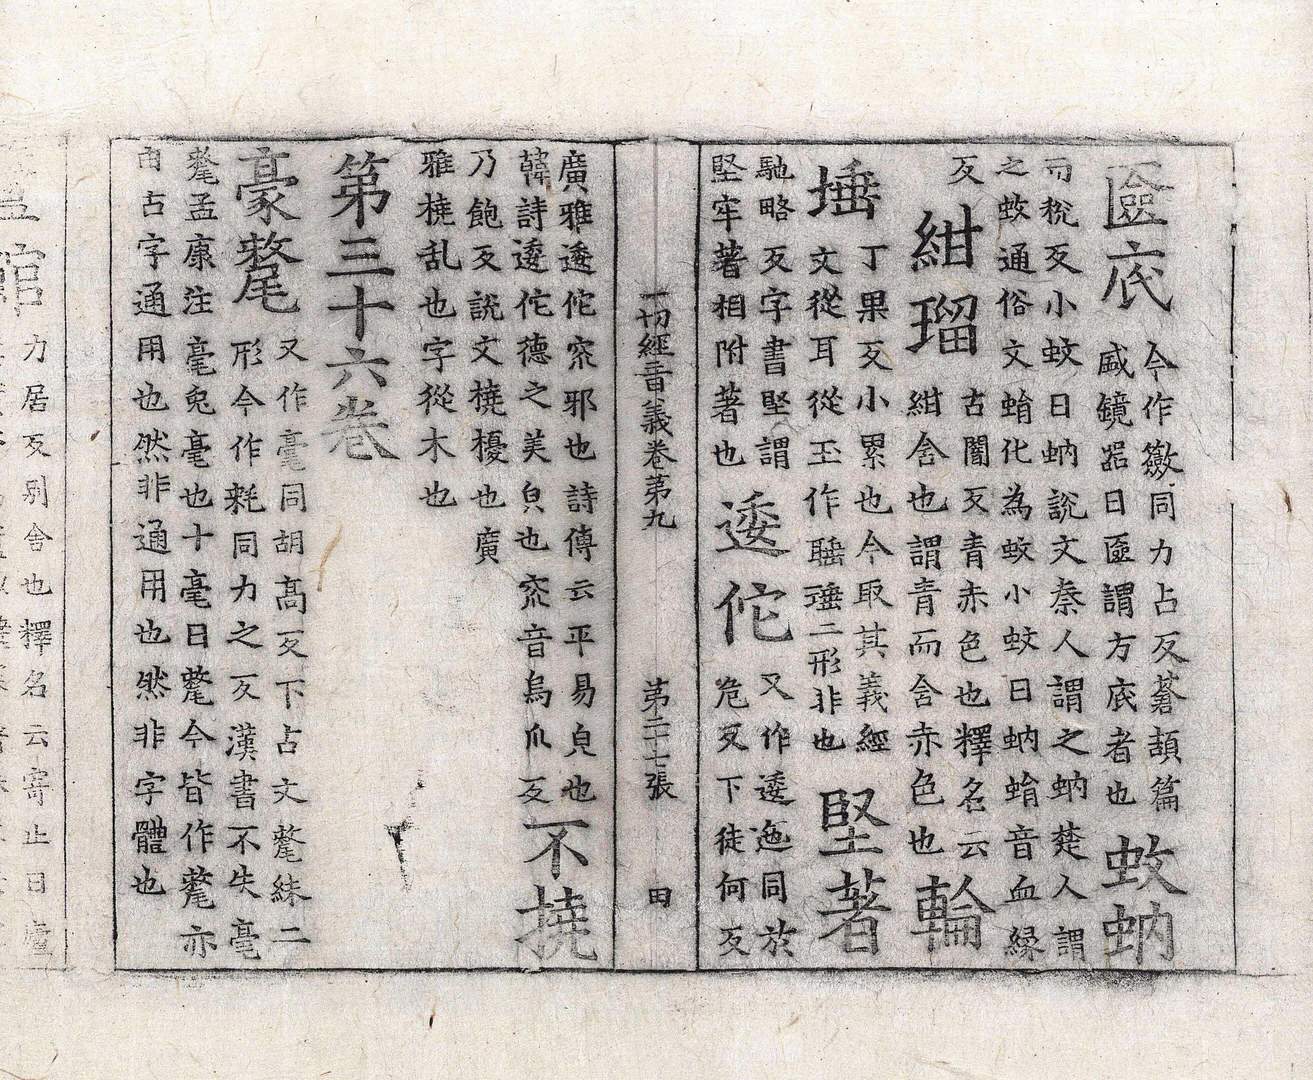 匳底 今作籨同力占反蒼頡篇
盛鏡器曰匳謂方底者也 蚊蚋
而稅反小蚊曰蚋說文秦人謂之蚋楚人謂
之蚊通俗文蜎化為蚊小蚊曰蚋蜎音血緣
反 紺瑠 古闇反青赤色也釋名云
紺含也謂青而含赤色也 輪
埵 丁果反小累也今取其義經
文從耳從玉作二形非也 堅著
馳略反字書堅謂
堅牢著相附著也 逶佗 又作逶迤同於
危反下徒何反
一切經音義卷第九 第二十七張 田
廣雅逶佗窊邪也詩傳云平易皃也
韓詩逶佗德之美皃也窊音烏爪反 不撓
乃飽反說文撓擾也廣
雅橈乱也字從木也
第三十六卷
豪氂 又作毫同胡高反下古文氂二
形今作耗同力之反漢書不失毫
氂孟康注毫兔毫也十毫曰氂今皆作氂亦
由古字通用也然非通用也然非字體也
館 力居反別舍也釋名云寄止曰廬